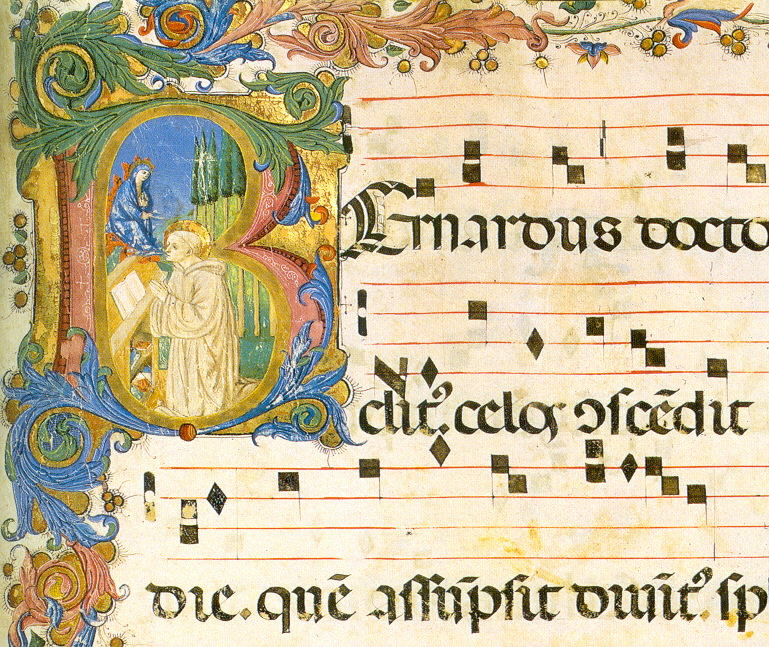 BErnardus docto
clitꝰ. celos ꝯſcēdit
die. quē aſſūpſit diuīt ꝰ. ſp